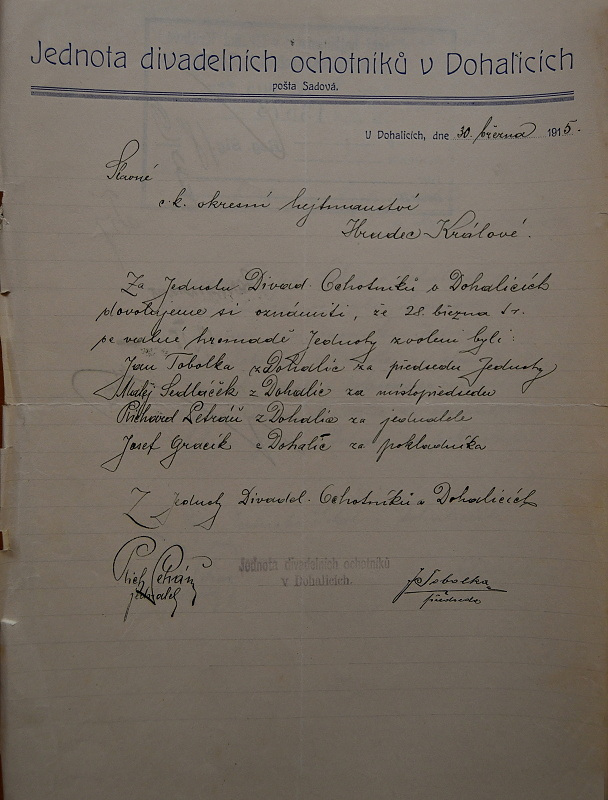 Jednota divadelních ochotníků v Dohalicích
pošta Sadová.
U Dohalicích, dne 30. března 1915.
Slavné
c. k. okresní hejtmanství
Hradec Králové.
Za Jednotu Divad. Ochotníků v Dohalicích
dovolujeme si oznámiti, že 28. března t. r.
po valné hromadě Jednoty zvoleni byli:
Jan Tobolka z Dohalic za předsedu Jednoty
Matěj Sedláček z Dohalic za místopředsedu
Richard Petráň z Dohalic za jednatele
Josef Gracík z Dohalic za pokladníka
Z Jednoty Divadel. Ochotníků v Dohalicích
Rich Petráň
jednatel
Jednota divadelních ochotníků
v Dohalicích.
J Tobolka
předseda